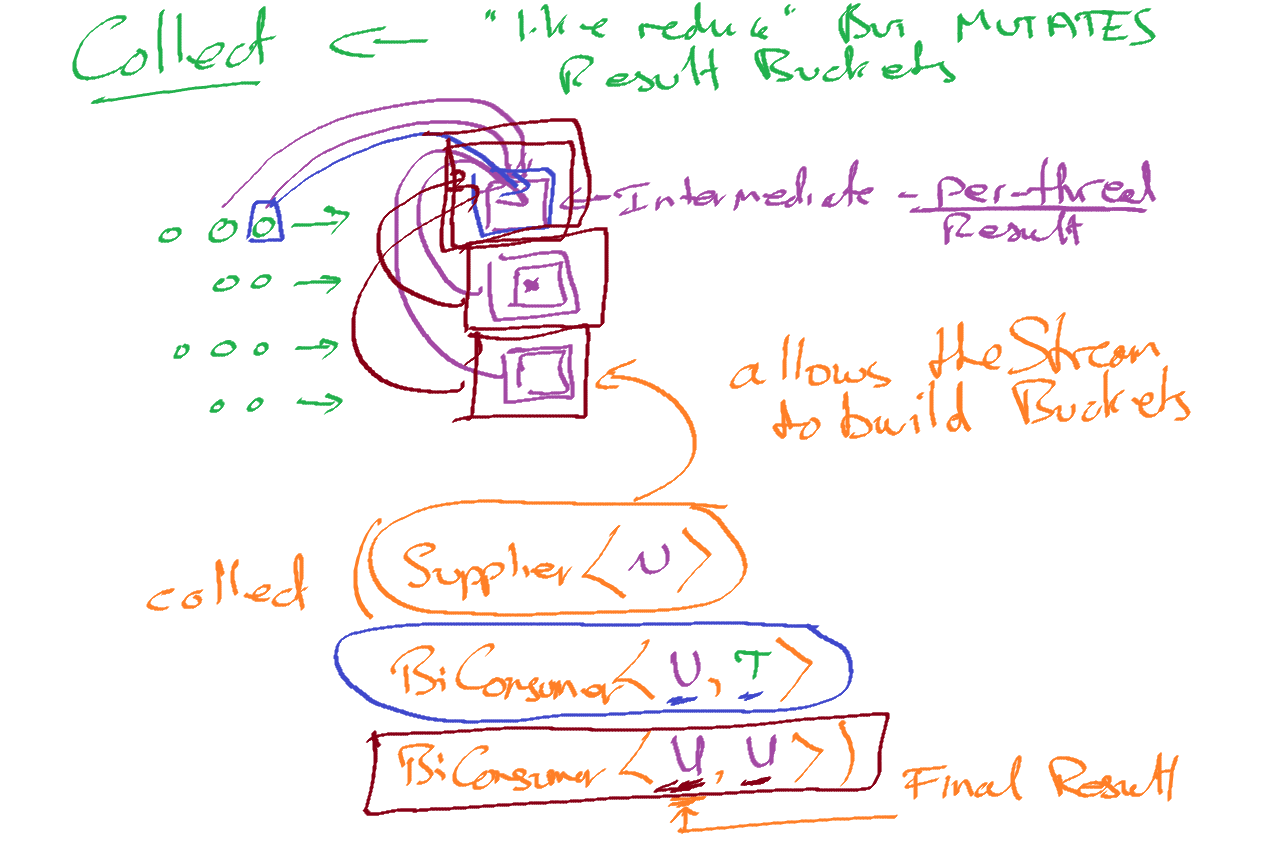 Collect ← "like reduce" But MUTATES
Result Buckets
Intermediate - per-thread
Result
allows the Stream
to build Buckets
collect (Supplier<U>
BiConsumer<U, T>
BiConsumer<U, U>)
Final Result